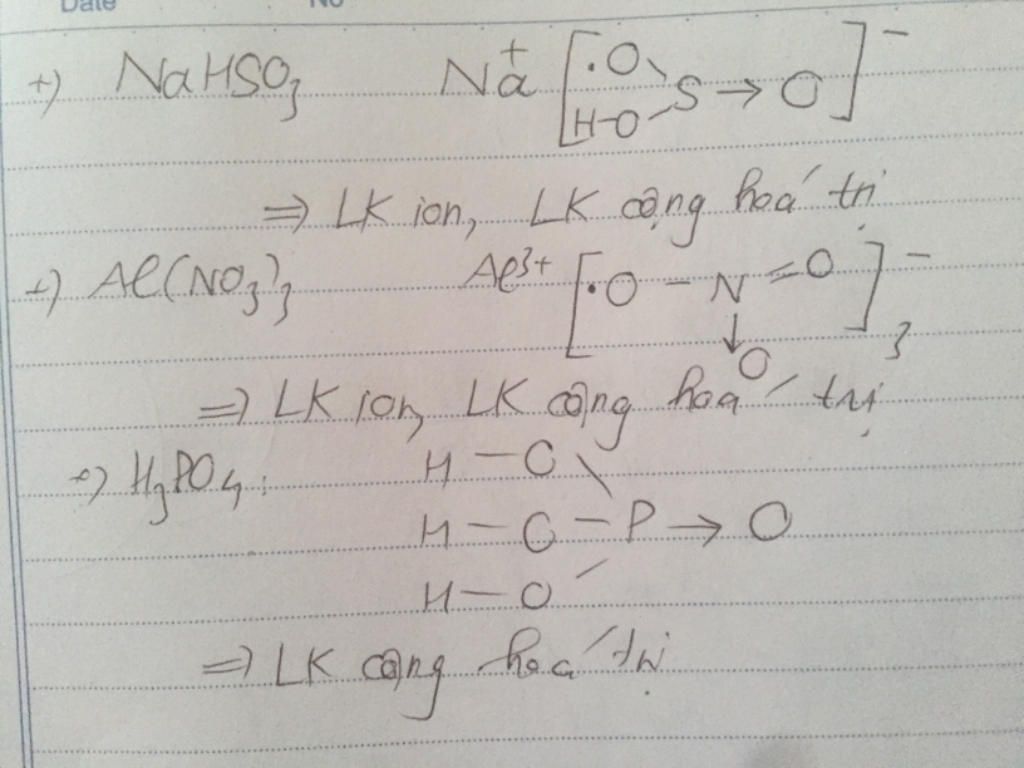 Date No
+) NaHSO3 Na+ [·O \
H-O / S → O]-
⇒ LK ion, LK cộng hoá trị
+) Al(NO3)3 Al3+ [·O - N = O]- 3
↓
O
⇒ LK ion, LK cộng hoá trị
+) H3PO4: H - O \
H - O - P → O
H - O /
⇒ LK cộng hoá trị